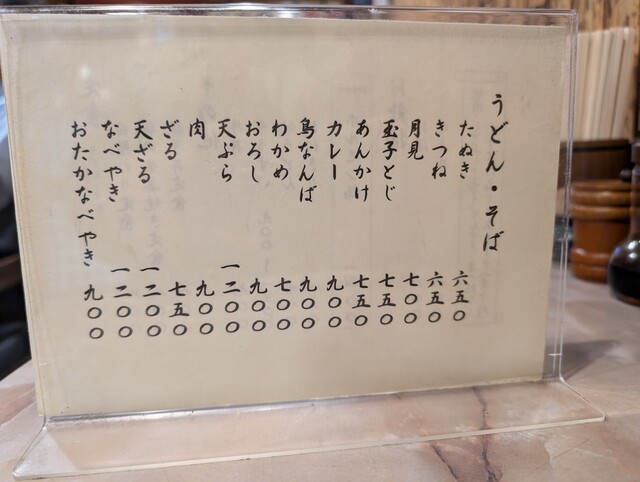 うどん・そば
たぬき 六五〇
きつね 六五〇
月見 七〇〇
玉子とじ 七五〇
あんかけ 七五〇
カレー 九〇〇
鳥なんば 九〇〇
わかめ 七〇〇
おろし 九〇〇
天ぷら 一二〇〇
肉 九〇〇
ざる 七五〇
天ざる 一二〇〇
なべやき 一二〇〇
おたかなべやき 九〇〇